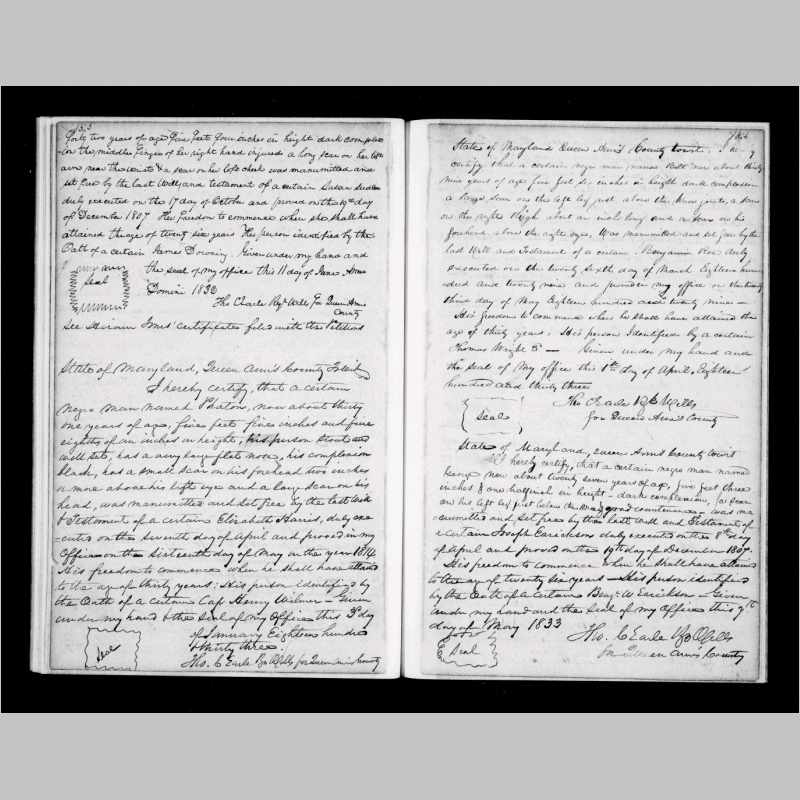 forty two years of age five feet four inches in height dark complex
ion the middle finger of her right hand injured a long scar on her left
arm near the & a scar on her left cheek was manumitted and
set free by the last Will and testament of a certain Susan Seeders
duly executed on the 17 day of October and proved on the 19th day
of December 1807 Her freedom to commence when she shall have
attained the age of twenty six years Her person identified by the
Oath of a certain James Downing. Given under my hand and
the seal of my office this 11 day of June Anno
Seal
Domini 1832
Tho C Earle Regr Wills for Queen Anns
County
See certificates filed with the Petitions
State of Maryland, Queen Ann's County to wit
I hereby certify, that a certain
Negro man named Phaton, now about thirty
one years of age, five feet five inches and five
eighths of an inches in height, his person stout and
well set, has a very large flat nose, his complexion
black, has a small scar on his forehead two inches
or more above his left eye and a large scar on his
head, was manumitted and set free by the last will
& Testament of a certain Elizabeth Harris, duly exe-
cuted on the seventh day of April and proved in my
Office on the sixteenth day of May in the year 1814
His freedom to commence when he shall have attained
to the age of thirty years; His person identified by
the Oath of a certain Cap Henry Wilmer - Given
under my hand & the seal of my Office this 3d day
of January Eighteen hundred
& thirty three.
Seal
Tho. C Earle Rgr Wills for Queen Anns County
State of Maryland Queen Ann's County Court.
certify that a certain negro man named now about thirty
nine years of age five feet six inches in heighth dark complexion
a large scar on the left leg just above the knee joint, a scar
on the right thigh about an inch long and a scar on his
forehead above the right eye, Was manumitted and set free by the
last Will and Testament of a certain Benjamin Roe duly
executed on the twenty sixth day of March Eighteen hun
dred and twenty nine and proven in my office on the twenty
third day of May Eighteen hundred and twenty nine -
His freedom to commence when he shall have attained the
age of thirty years. His person Identified by a certain
Thomas Wright 5th - Given under my hand and
the seal of My office this 1st day of April, Eighteen
hundred and thirty three
Tho C Earle Rgr Wills
Seal
for Queen Ann's County
State of Maryland, Queen Ann's County Court
I hereby certify, that a certain negro man named
now about twenty seven years of age, five feet three
inches & one half inch in height - dark complexion, (a scar
on his left leg just below the knee) good countenance - was ma
numitted and set free by the last will and Testament of
a certain Joseph Earickson duly executed on the 8th day
of April and proved on the 19th day of December 1807.
His freedom to commence when he shall have attained
to the age of twenty six years - His person identified
by the Oath of a certain Benj W Earickson - Given
under my hand and the Seal of my Office this 9th
day of May 1833
Tho. C Earle Rgr Wills
Seal
for Queen Ann's County